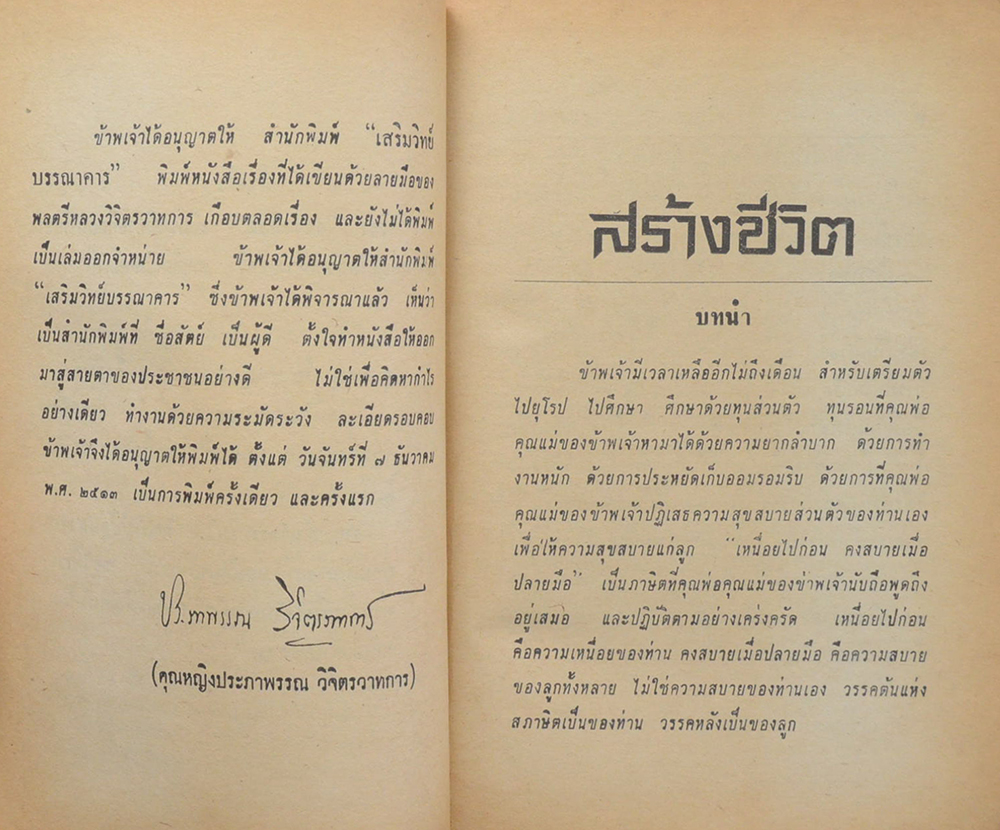 ข้าพเจ้าได้อนุญาตให้ สำนักพิมพ์ “เสริมวิทย์
บรรณาคาร” พิมพ์หนังสือเรื่องที่ได้เขียนด้วยลายมือของ
พลตรีหลวงวิจิตรวาทการ เกือบตลอดเรื่อง และยังไม่ได้พิมพ์
เป็นเล่มออกจำหน่าย ข้าพเจ้าได้อนุญาตให้สำนักพิมพ์
“เสริมวิทย์บรรณาคาร” ซึ่งข้าพเจ้าได้พิจารณาแล้ว เห็นว่า
เป็นสำนักพิมพ์ที่ ซื่อสัตย์ เป็นผู้ดี ตั้งใจทำหนังสือให้ออก
มาสู่สายตาของประชาชนอย่างดี ไม่ใช่เพื่อคิดหากำไร
อย่างเดียว ทำงานด้วยความระมัดระวัง ละเอียดรอบคอบ
ข้าพเจ้าจึงได้อนุญาตให้พิมพ์ได้ ตั้งแต่ วันจันทร์ที่ ๗ ธันวาคม
พ.ศ. ๒๕๑๓ เป็นการพิมพ์ครั้งเดียว และครั้งแรก
ประภาพรรณ วิจิตรวาทการ
(คุณหญิงประภาพรรณ วิจิตรวาทการ)
สร้างชีวิต
บทนำ
ข้าพเจ้ามีเวลาเหลืออีกไม่ถึงเดือน สำหรับเตรียมตัว
ไปยุโรป ไปศึกษา ศึกษาด้วยทุนส่วนตัว ทุนรอนที่คุณพ่อ
คุณแม่ของข้าพเจ้าหามาได้ด้วยความยากลำบาก ด้วยการทำ
งานหนัก ด้วยการประหยัดเก็บออมรอมริบ ด้วยการที่คุณพ่อ
คุณแม่ของข้าพเจ้าปฏิเสธความสุขสบายส่วนตัวของท่านเอง
เพื่อให้ความสุขสบายแก่ลูก “เหนื่อยไปก่อน คงสบายเมื่อ
ปลายมือ” เป็นภาษิตที่คุณพ่อคุณแม่ของข้าพเจ้านับถือพูดถึง
อยู่เสมอ และปฏิบัติตามอย่างเคร่งครัด เหนื่อยไปก่อน
คือความเหนื่อยของท่าน คงสบายเมื่อปลายมือ คือความสบาย
ของลูกทั้งหลาย ไม่ใช่ความสบายของท่านเอง วรรคต้นแห่ง
สภาษิตเป็นของท่าน วรรคหลังเป็นของลูก